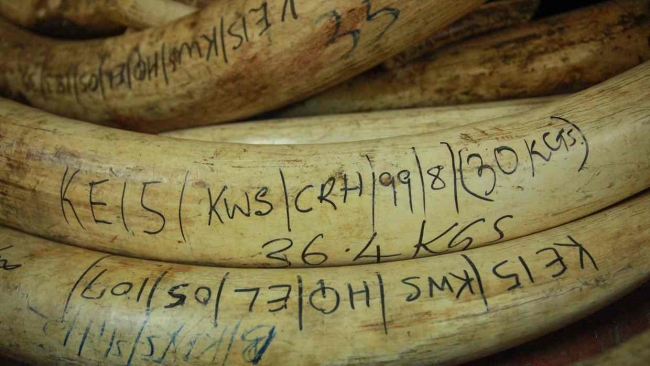 KE15/KWS/HQ/EL/05/
KE15/ KWS/CRH/99/8/(30 KGS.)
26.4 KGS
KE15/KWS/HQ/EL/05/107/